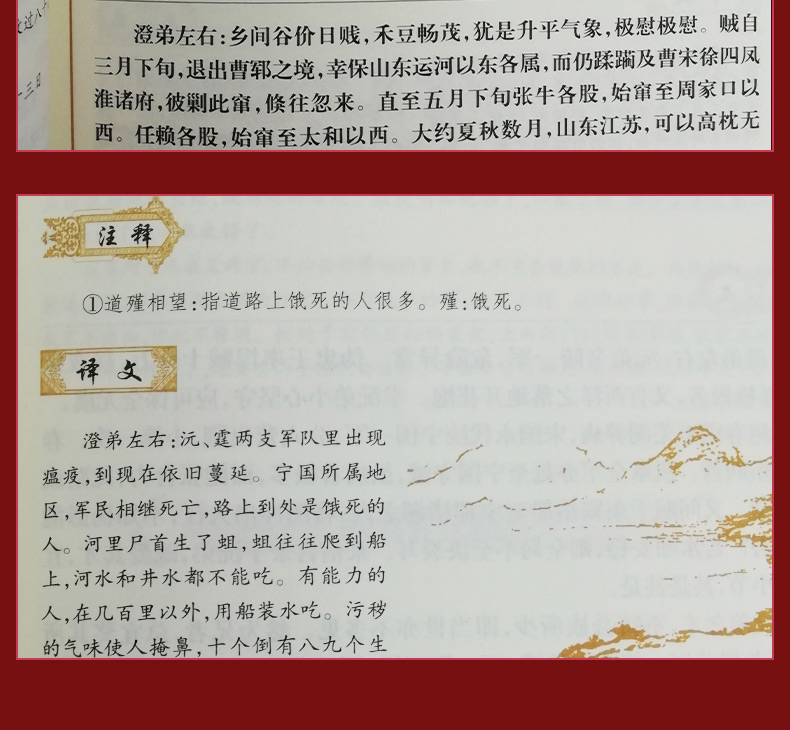 澄弟左右:乡间谷价日贱,禾豆畅茂,犹是升平气象,极慰极慰。贼自
三月下旬,退出曹郓之境,幸保山东运河以东各属,而仍蹂躏及曹宋徐四凤
淮诸府,彼剿此窜,倏往忽来。直至五月下旬张牛各股,始窜至周家口以
西。任赖各股,始窜至太和以西。大约夏秋数月,山东江苏,可以高枕无
注释
①道殣相望:指道路上饿死的人很多。殣:饿死。
译文
澄弟左右:沅、霆两支军队里出现
瘟疫,到现在依旧蔓延。宁国所属地
区,军民相继死亡,路上到处是饿死的
人。河里尸首生了蛆,蛆往往爬到船
上,河水和井水都不能吃。有能力的
人,在几百里以外,用船装水吃。污秽
的气味使人掩鼻,十个倒有八九个生